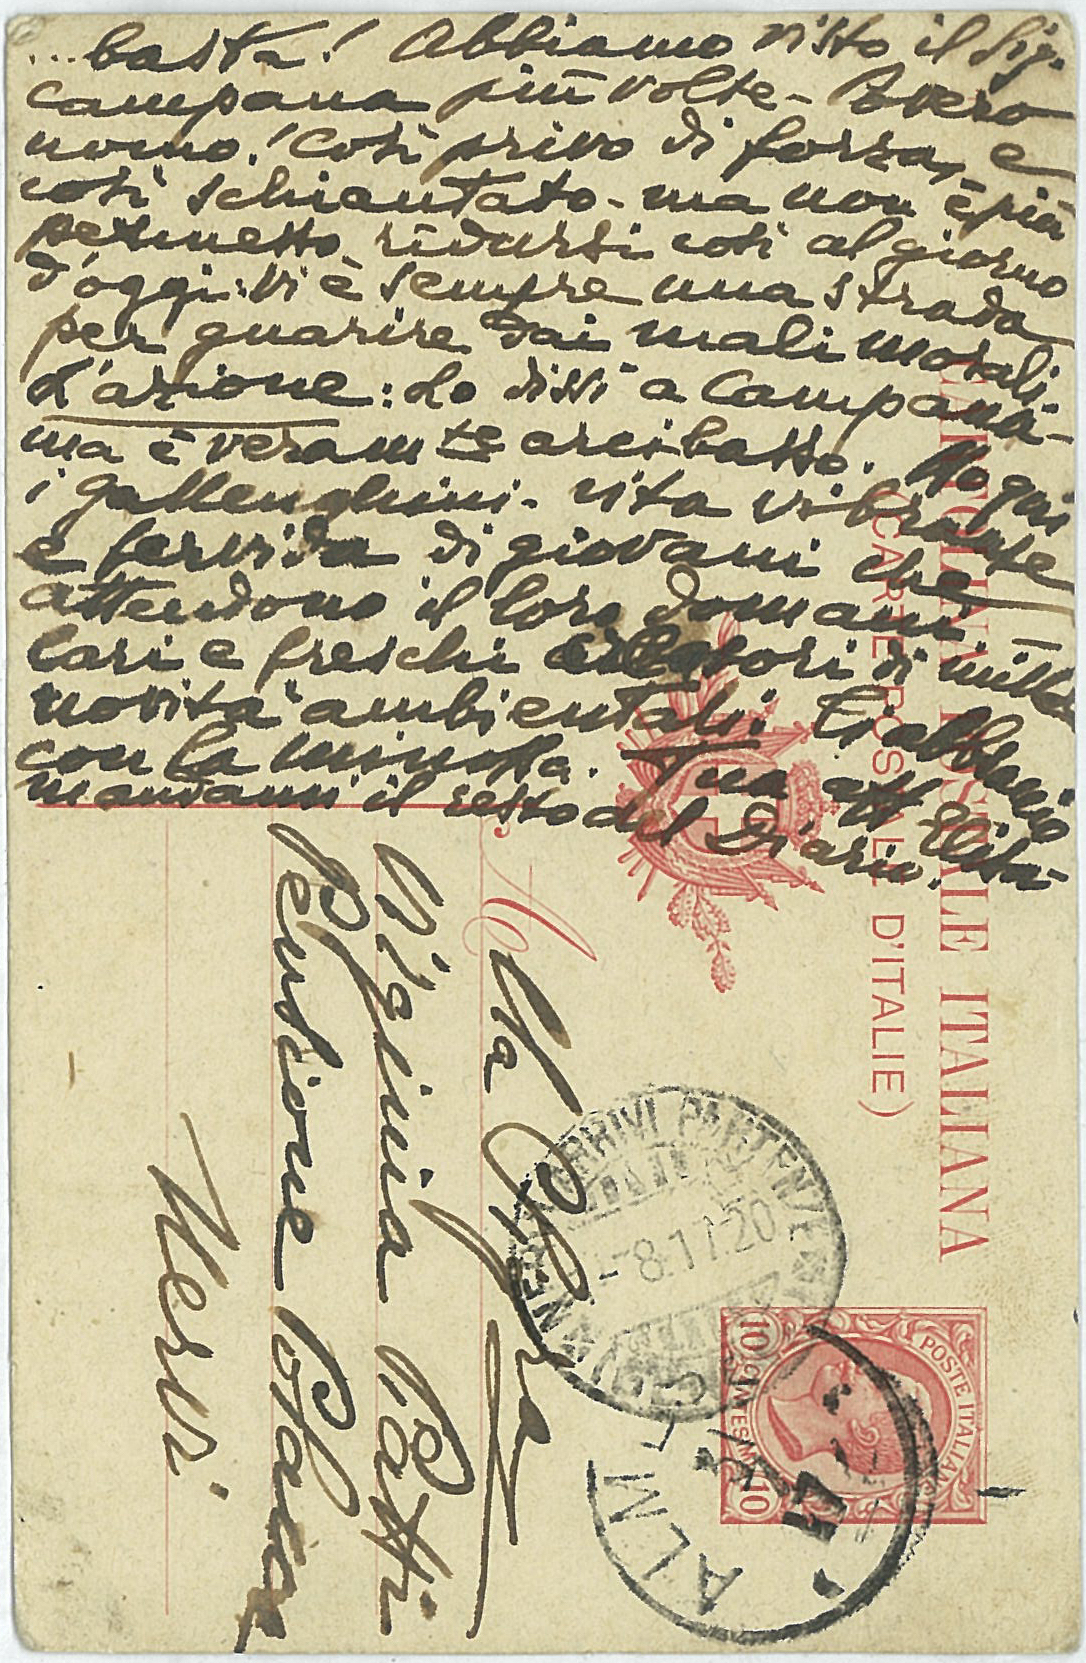 ...basta! Abbiamo visto il Sig.
Campana più volte - Povero
uomo! Così privo di forza, e
così schiantato - ma non è più
permesso ridursi così al giorno
d'oggi: vi è sempre una strada
per guarire dai mali morali -
L'azione: Lo dissi a Campana -
ma è veramte arcibasso. Ho qui
i - vita vibrante
e fervida di giovani che
attendono il loro domani
ilari e freschi creatori di mille
novità ambientali. Ti abbraccio
con la Tua aff
mandami il resto del Diario.
CARTOLINA POSTALE ITALIANA
(CARTE POSTALE D'ITALIE)
A
lla Sig.ra
Virginia
Pensione
Nervi
ARRIVI PARTENZE
-8.17-20
POSTE ITALIANE
10 CENTESIMI 10
17